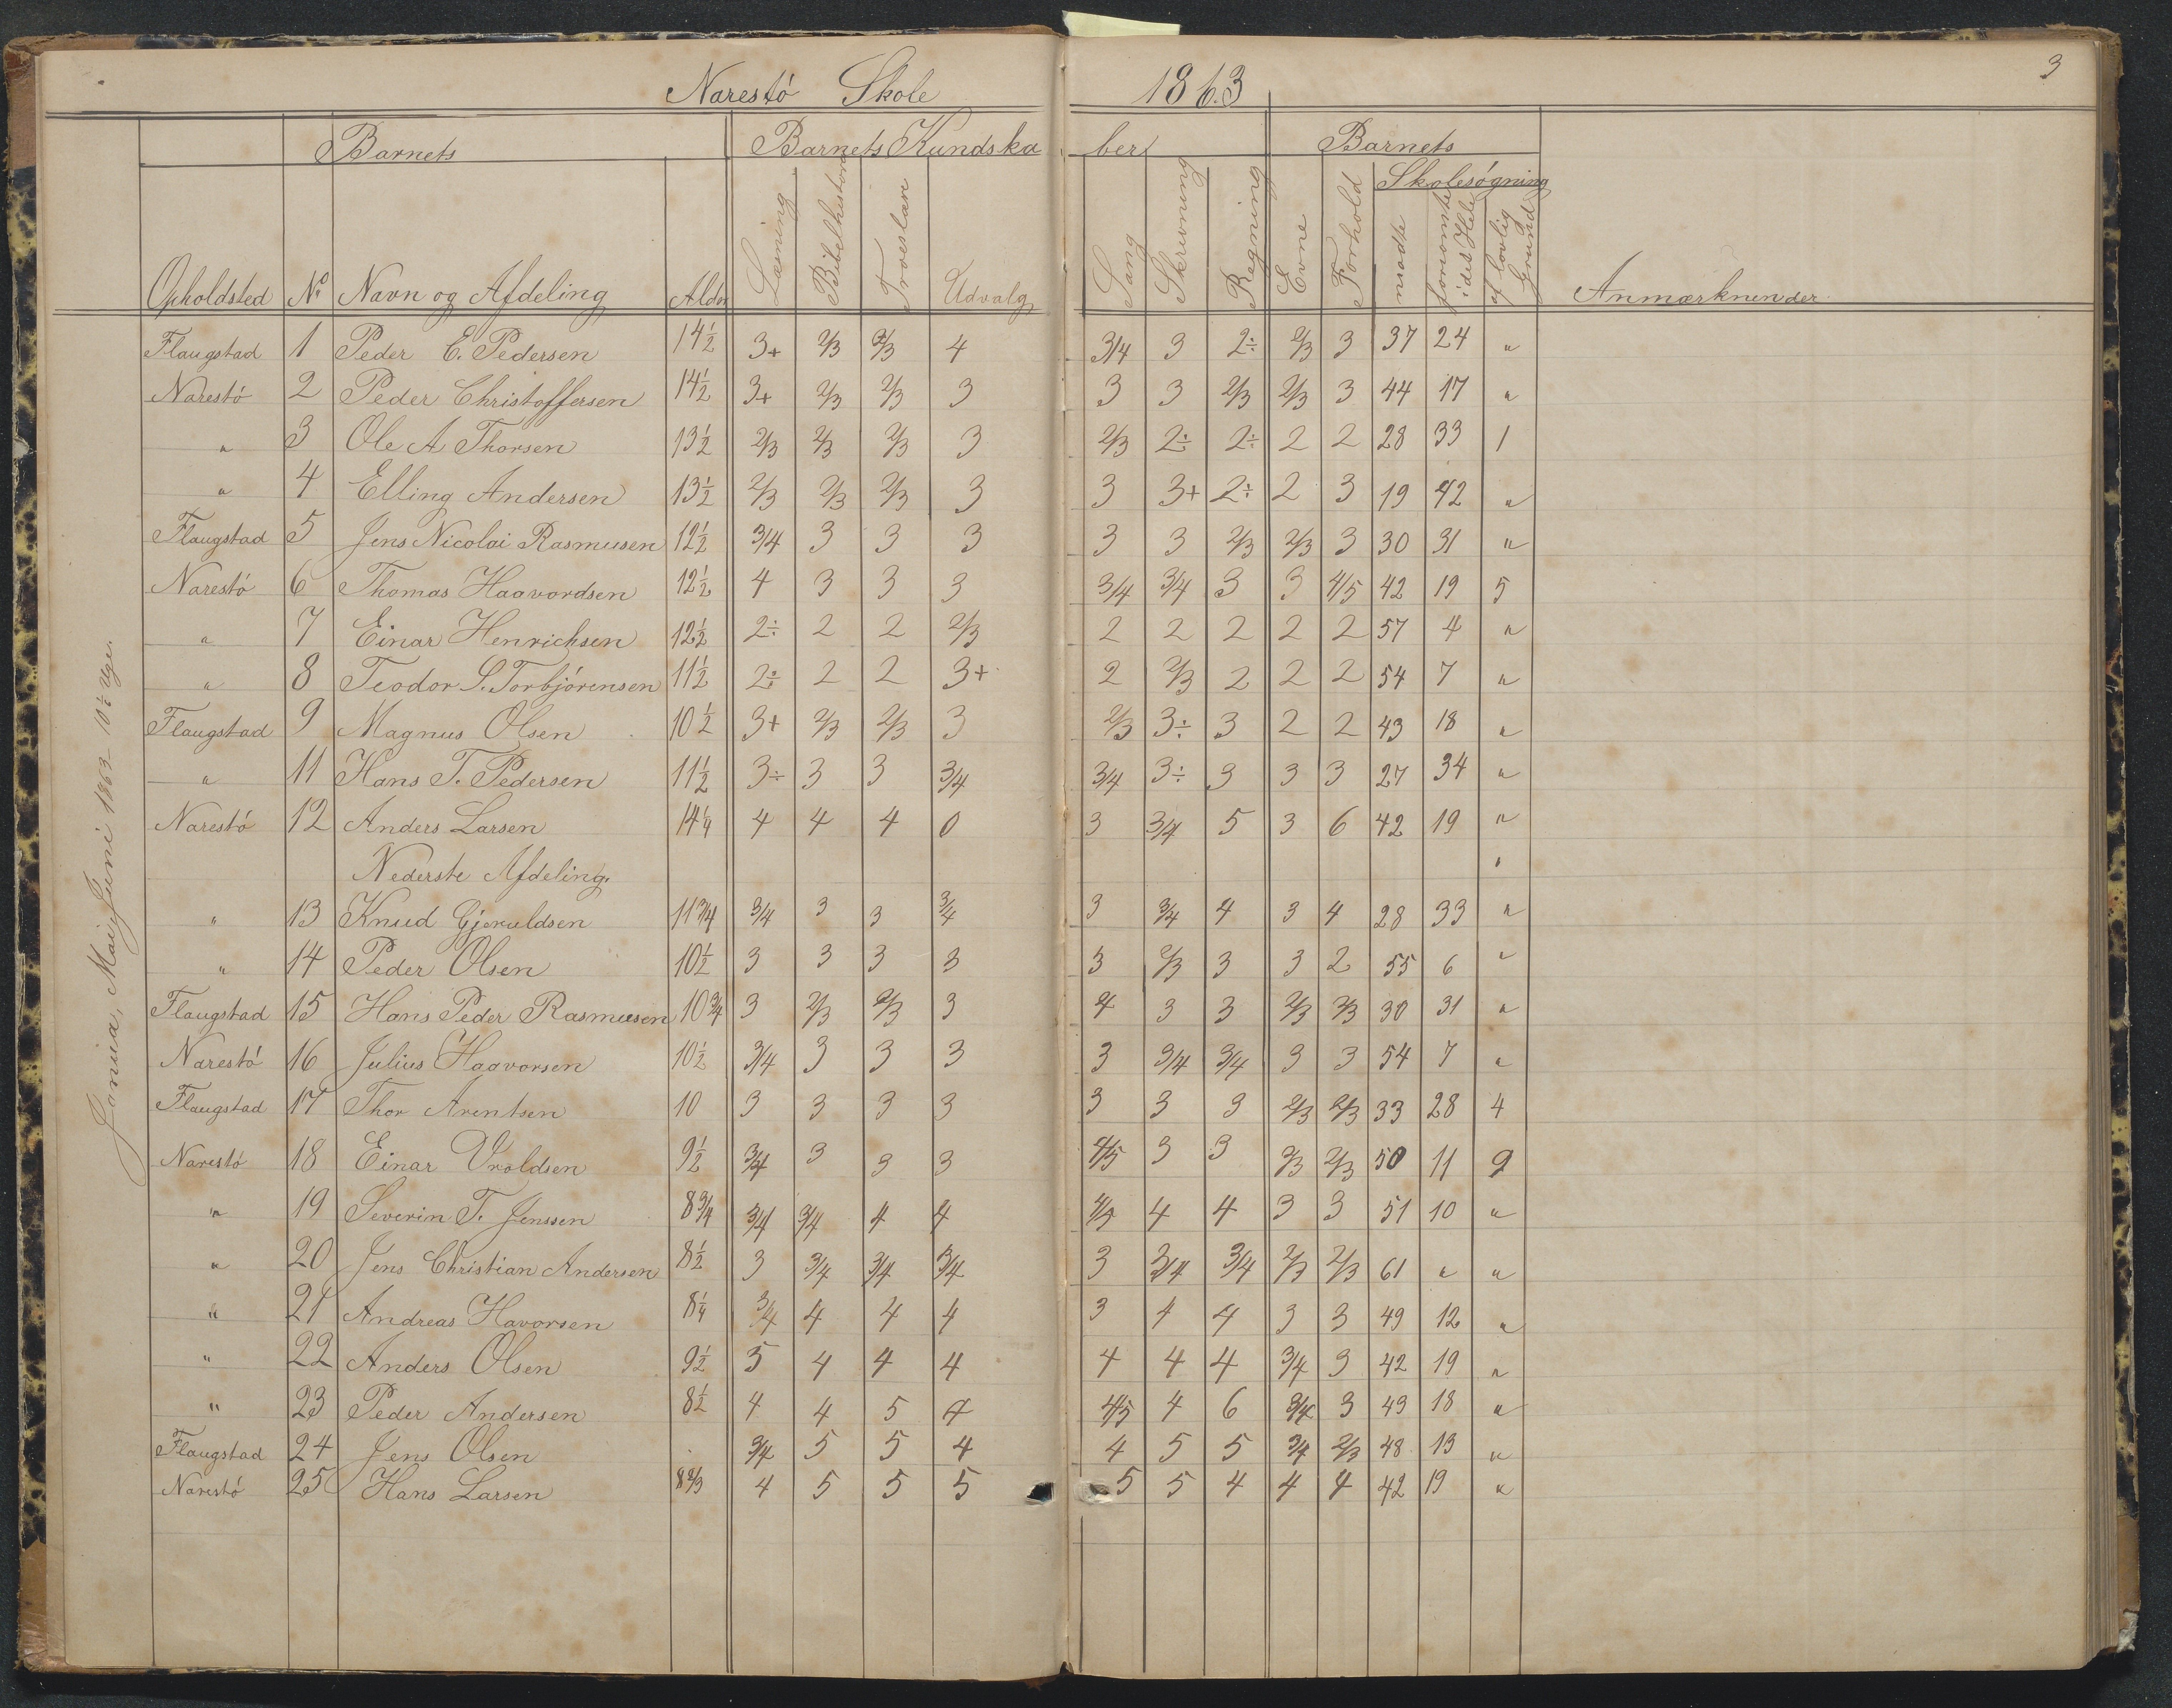 3
Narestö Skole 1863
Barnets Barnets Kundskaber Barnets
Skolesøgning
Opholdsted No Navn og Afdeling Alder Læsning Bibelhistorie Troeslære Udvalg Sang Skrivning Regning Evne Forhold mødte forsømte i det Hele af lovlig Grund Anmærkninder
Januar, Mai, Juni 1863 10 1/2 Uge.
Flaugstad 1 Peder E. Pedersen 14 1/2 3+ 2/3 2/3 4 3/4 3 2÷ 2/3 3 37 24 "
Narestö 2 Peder Christoffersen 14 1/2 3+ 2/3 2/3 3 3 3 2/3 2/3 3 44 17 "
" 3 Ole A Thorsen 13 1/2 2/3 2/3 2/3 3 2/3 2÷ 2÷ 2 2 28 33 1
" 4 Elling Andersen 13 1/2 2/3 2/3 2/3 3 3 3+ 2÷ 2 3 19 42 "
Flaugstad 5 Jens Nicolai Rasmusen 12 1/2 3/4 3 3 3 3 3 2/3 2/3 3 30 31 "
Narestö 6 Thomas Haavordsen 12 1/2 4 3 3 3 3/4 3/4 3 3 4/5 42 19 5
" 7 Einar Henrichsen 12 1/2 2÷ 2 2 2/3 2 2 2 2 2 57 4 "
" 8 Teodor S. Torbjörensen 11 1/2 2÷ 2 2 3+ 2 2/3 2 2 2 54 7 "
Flaugstad 9 Magnus Olsen 10 1/2 3+ 2/3 2/3 3 2/3 3÷ 3 2 2 43 18 "
" 11 Hans T. Pedersen 11 1/2 3÷ 3 3 3/4 3/4 3÷ 3 3 3 27 34 "
Narestö 12 Anders Larsen 14 1/4 4 4 4 0 3 3/4 5 3 6 42 19 "
Nederste Afdeling.
" 13 Knud Gjeruldsen 11 3/4 3/4 3 3 3/4 3 3/4 4 3 4 28 33 "
" 14 Peder Olsen 10 1/2 3 3 3 3 3 2/3 3 3 2 55 6 "
Flaugstad 15 Hans Peder Rasmusen 10 3/4 3 2/3 2/3 3 4 3 3 2/3 2/3 30 31 "
Narestö 16 Julius Haavorsen 10 1/2 3/4 3 3 3 3 3/4 3/4 3 3 54 7 "
Flaugstad 17 Thor Arentsen 10 3 3 3 3 3 3 3 2/3 2/3 33 28 4
Narestö 18 Einar Vroldsen 9 1/2 3/4 3 3 3 4/5 3 3 2/3 2/3 50 11 9
" 19 Severin T. Jenssen 8 3/4 3/4 3/4 4 4 4/5 4 4 3 3 51 10 "
" 20 Jens Christian Andersen 8 1/2 3 3/4 3/4 3/4 3 3/4 3/4 2/3 2/3 61 " "
" 21 Andreas Havorsen 8 1/4 3/4 4 4 4 3 4 4 3 3 49 12 "
" 22 Anders Olsen 9 1/2 5 4 4 4 4 4 4 3/4 3 42 19 "
" 23 Peder Andersen 8 1/2 4 4 5 4 4/5 4 6 3/4 3 43 18 "
Flaugstad 24 Jens Olsen 3/4 5 5 4 4 5 5 3/4 2/3 48 13 "
Narestö 25 Hans Larsen 8 2/3 4 5 5 5 5 5 4 4 4 42 19 "